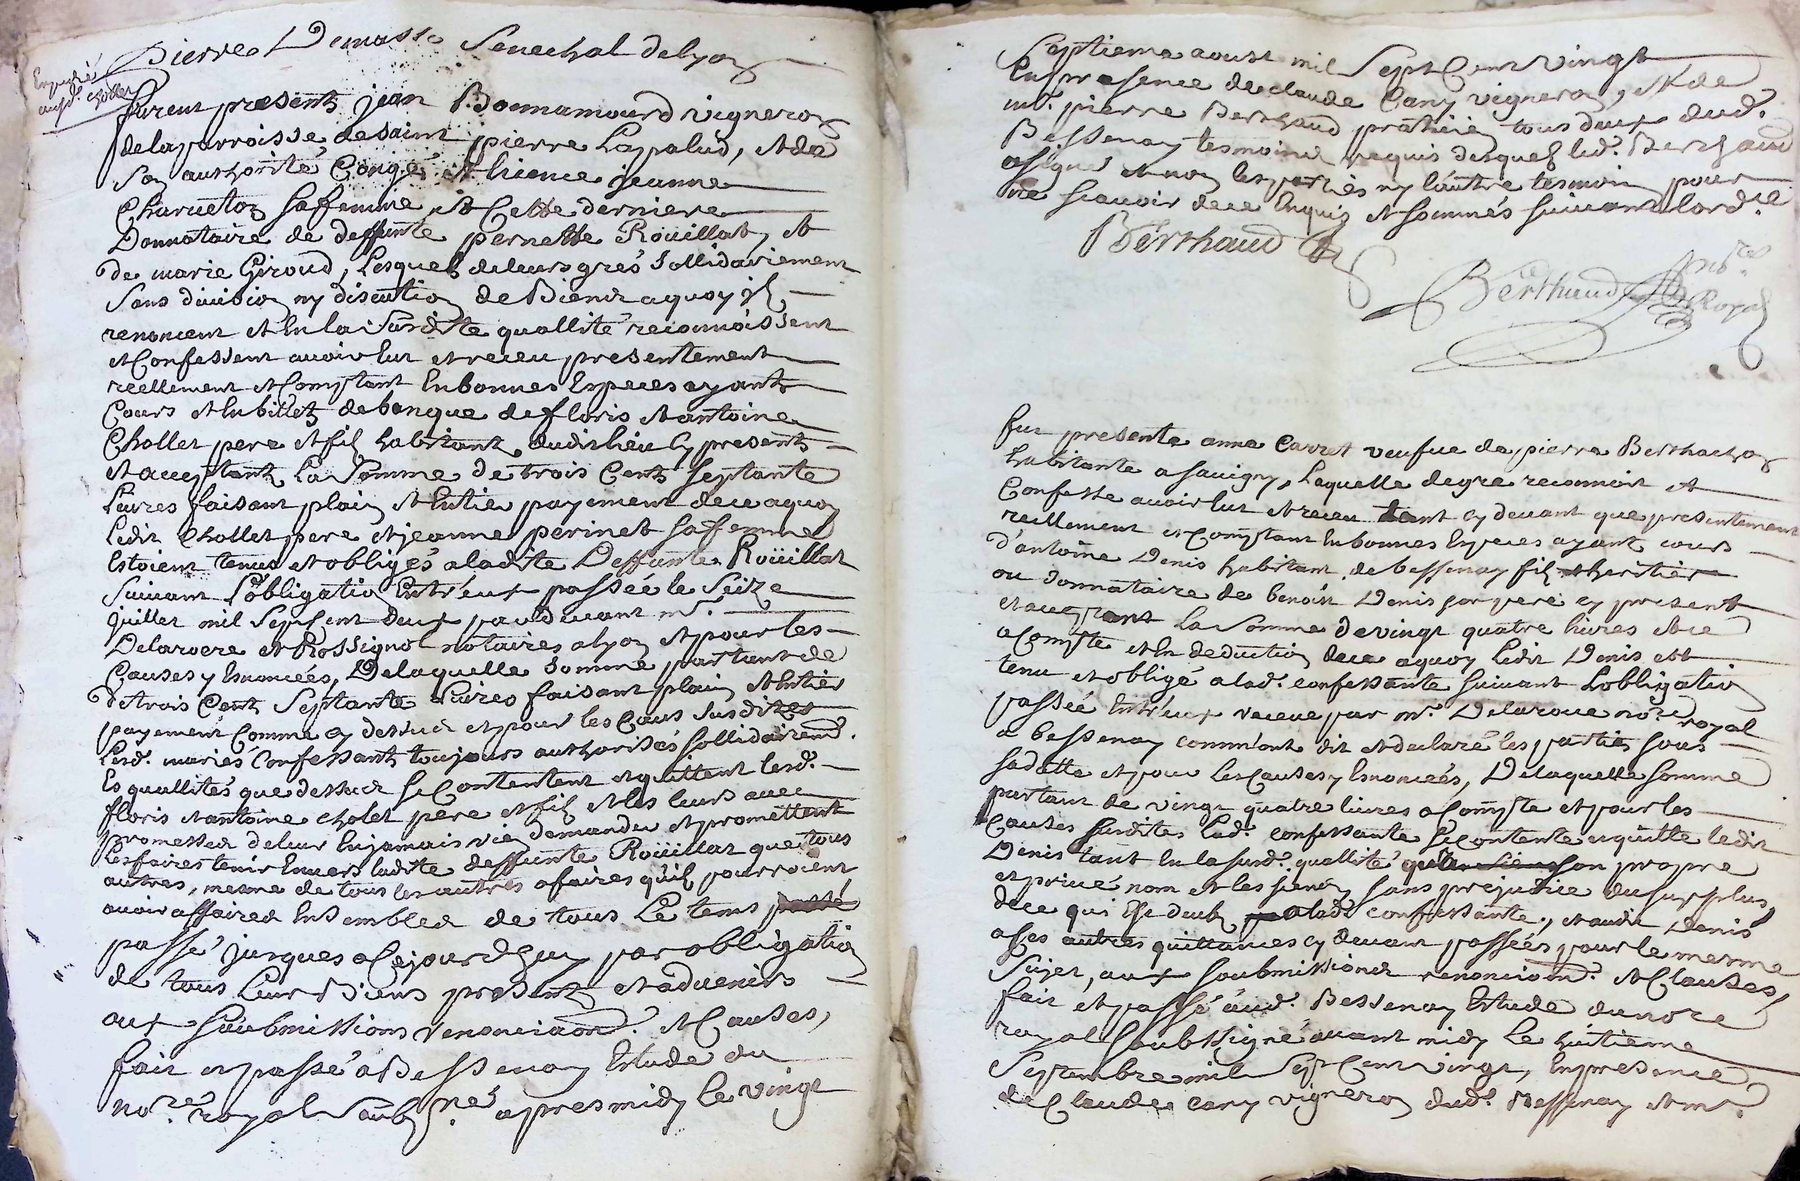 Pierre Demasso Senechal delyon
Expedié
aud. chollet
furent presents jean Bonnamourd vigneron
delaparroisse desaint pierre Lapalud, et de
son authorité Congé et lience jeanne
Charreton saffemme, et Cette derniere
Donnataire de deffunte pernette Roüillat, et
de marie Giroud, Lesquels deleurs grés sollidairement
sans division ny discution de Biens aquoy ils
renoncent et En la susdite quallité reconnoissent
et Confessent avoir Eut et receu presentement
reellement et Comptant En bonnes Especes ayants
Cours et En billets debanque de floris et antoine
Chollet pere et fils habitants dudit lieu Cy presents
et acceptants La somme de trois Cents septante
Livres faisant plain et Entier payement dece aquoy
Ledit Chollet pere et jeanne perinet saffemme
Estoient tenus et obligés aladite Deffunte Roüillat
suivant L'obligation Entr'eux passée le seize
juillet mil sept cent deux pardevant mrs.
Delaroere et Rossignol notaires alyon et pour les
Causes y Enoncées, Delaquelle somme partant de
de trois Cents septante Livres faisant plain et Entier
payement Comme cy dessus et pour les Caus susdites
Lesd. mariés Confessants toujours authorisés sollidairemt.
Es quallités que dessus se Contentent et quittent lesd.
floris et antoine cholet pere et fils et les leurs avec
promesses deleur En jamais rien demander et promettent
les faires tenir Envers ladite deffunte Roüillat que tous
autres, mesme de tous les autres afaires qu'ils pourroient
avoir affaires Ensembles de tous Le tems passé
passé jusques a Cejourdhuy par obligation
de tous Leur Biens presents et advenirs
aux soubmissions renonciaons. et Causes,
fait et passé a Bessenay Estude du
nore. royal soubsné. apres midy le vingt
septieme aoust mil sept Cent vingt
En presence de claude Cany vigneron, et de
mr. pierre Berthaud praticien tous deux dud.
Bessenay tesmoins requis desquels led. Berthaud
a signé et non les parties ny l'autre tesmoin pour
ne scavoir dece Enquis et sommés suivant lord.ce
Berthaud
Berthaud nore Royal
fut presente anne Carret veufve de pierre Berthachon
habitante a savigny, Laquelle de gre reconnoit et
Confesse avoir Eut et receu tant cy devant que presentement
reellement et Comptant En bonnes Especes ayants cours
d'antoine Denis habitant de bessenay fils et heritier
ou donnataire de benoist Denis son pere cy present
et acceptant La somme devingt quatre livres et ce
a Compte et En deduction dece aquoy ledit Denis est
tenu et obligé alad. confessante suivant Lobligation
passée Entr'eux receue par mr. Delaroue nore royal
a bessenay comm'ont dit et declaré les parties sous
sadatte et pour les Causes y Enoncées, Delaquelle somme
partant de vingt quatre livres a Compte et pour les
Causes susdites Lad. confessante se contente et quitte ledit
Denis tant En la susd. quallité qu'en son propre
et privé nom et les siens, sans prejudice du surplus
dece qui Est deub alad. confessante, et audit Denis
a ses autres quittances cy devant passées pour le mesme
sujet, aux soubmissions renonciaons. et Clauses,
fait et passé aud. Bessenay Estude du nore
royal soubsigné avant midy Le huitieme
septembre mil sept Cent vingt, En presence
de Claude Cany vigneron dud. Bessenay et mr.